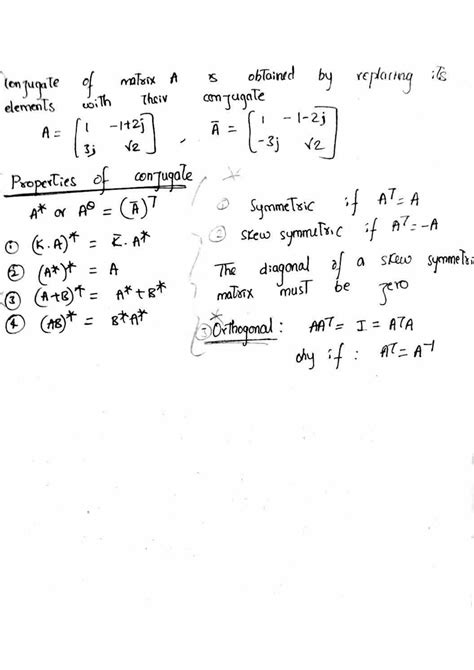 Conjugate of matrix A is obtained by replacing its
elements with their conjugate
A = [1 -1+2j; 3j √2] , Ā = [1 -1-2j; -3j √2]
Properties of conjugate
A* or A^θ = (Ā)^T
① (K.A)* = K̄.A*
② (A*)* = A
③ (A+B)* = A*+B*
④ (AB)* = B*A*
① Symmetric if A^T = A
② skew symmetric if A^T = -A
The diagonal of a skew symmetric
matrix must be zero
③ Orthogonal : AA^T = I = A^TA
only if : A^T = A^-1